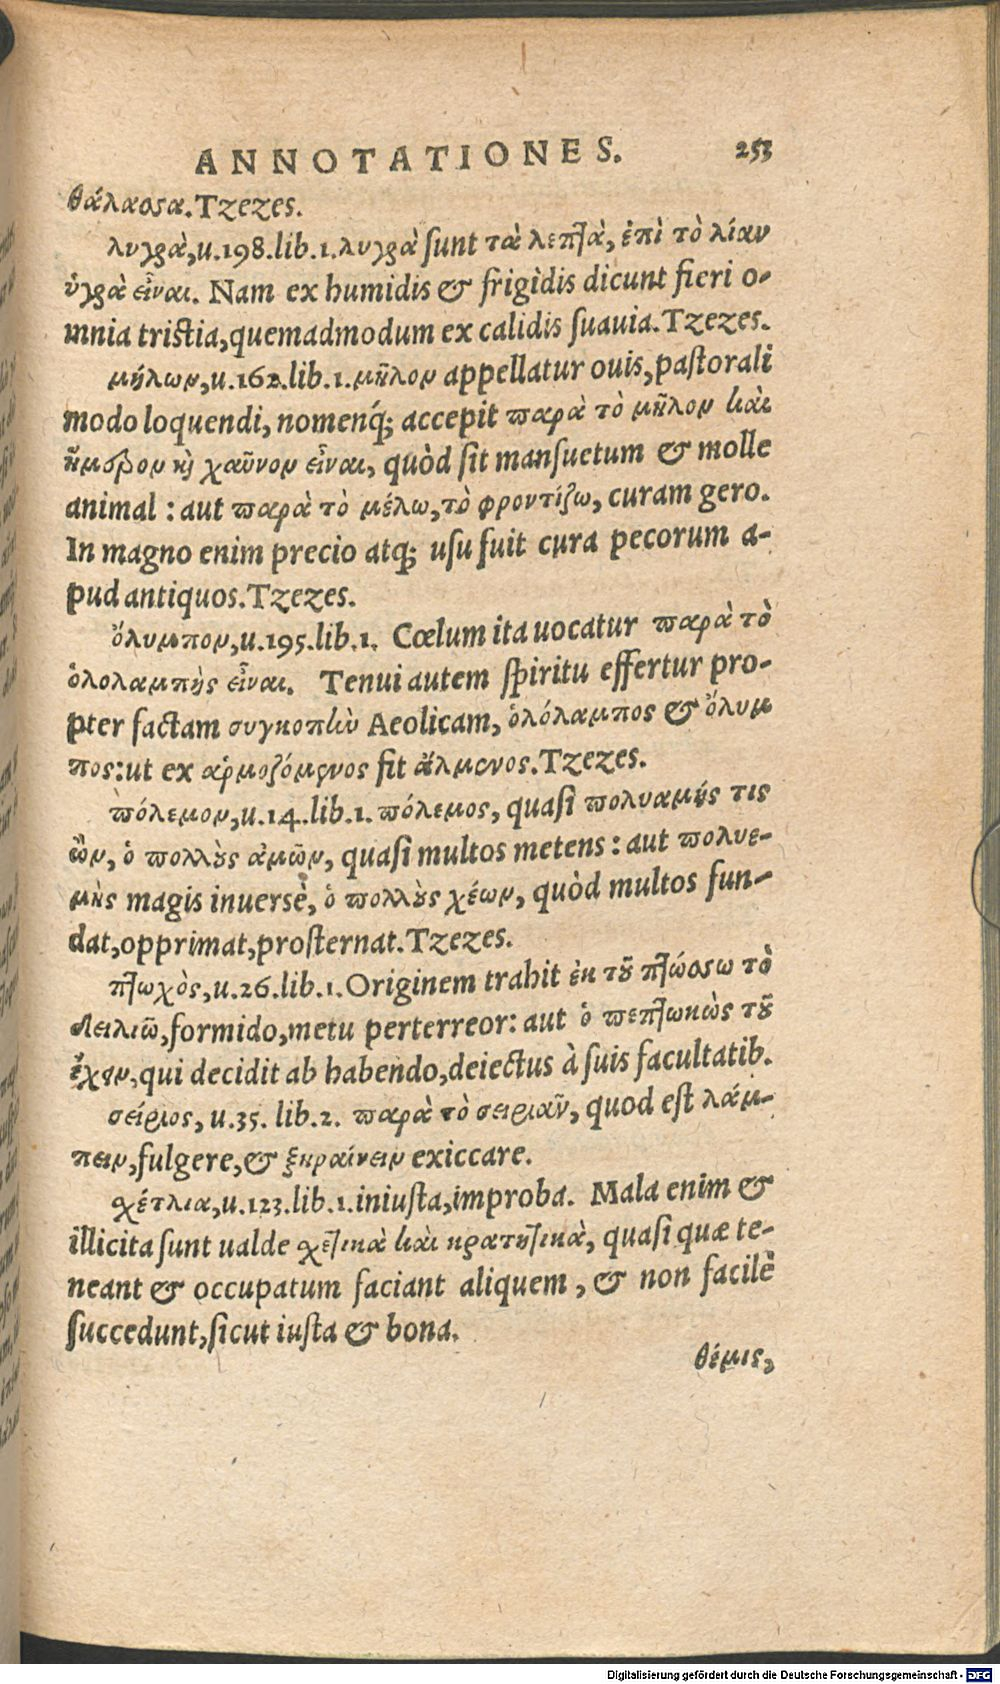 ANNOTATIONES. 253
θάλαοσα.Tzezes.
λυγρὰ,u.198.lib.1.λυγρὰ sunt τὰ λεπτὰ, ἐπὶ τὸ λίαν
ὑγρὰ εἶναι. Nam ex humidis & frigidis dicunt fieri o-
mnia tristia,quemadmodum ex calidis suauia.Tzezes.
μήλων,u.162.lib.1.μῆλον appellatur ouis,pastorali
modo loquendi, nomenq́; accepit παρὰ τὸ μῆλον καὶ
ἥμερον καὶ χαῦνον εἶναι, quòd sit mansuetum & molle
animal : aut παρὰ τὸ μέλω,τὸ φροντίζω, curam gero.
In magno enim precio atq; usu fuit cura pecorum a-
pud antiquos.Tzezes.
ὄλυμπον,u.195.lib.1. Cœlum ita uocatur παρὰ τὸ
ὁλολαμπὴς εἶναι. Tenui autem spiritu effertur pro-
pter factam συγκοπὴν Aeolicam, ὁλόλαμπος & ὄλυμ
πος:ut ex ἁρμοζόμενος fit ἄλμενος.Tzezes.
πόλεμον,u.14.lib.1. πόλεμος, quasi πολυαμής τις
ὢν, ὁ πολλοὺς ἀμῶν, quasi multos metens : aut πολυε-
μὴς magis inuersè, ὁ πολλοὺς χέων, quòd multos fun-
dat,opprimat,prosternat.Tzezes.
πτωχὸς,u.26.lib.1.Originem trahit ἐκ τοῦ πτώοσω τὸ
δειλιῶ,formido,metu perterreor: aut ὁ πεπτωκὼς τοῦ
ἔχειν,qui decidit ab habendo,deiectus à suis facultatib.
σείριος, u.35. lib.2. παρὰ τὸ σειριᾶν, quod est λάμ-
πειν,fulgere,& ξηραίνειν exiccare.
σχέτλια,u.123.lib.1.iniusta,improba. Mala enim &
illicita sunt ualde σχετικὰ καὶ κρατητικὰ, quasi quæ te-
neant & occupatum faciant aliquem , & non facilè
succedunt,sicut iusta & bona.
θέμις,
Digitalisierung gefördert durch die Deutsche Forschungsgemeinschaft - DFG